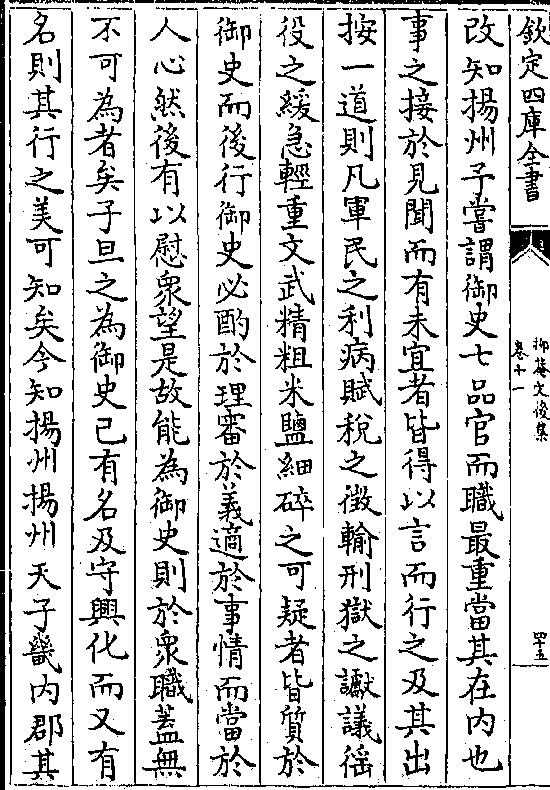 欽定四庫全書
抑菴文後集
卷十一
四十五
改知揚州子嘗謂御史七品官而職最重當其在内也
事之接於見聞而有未宜者皆得以言而行之及其出
按一道則凡軍民之利病賦稅之徵輸刑獄之讞議徭
役之緩急輕重文武精粗米鹽細碎之可疑者皆質於
御史而後行御史必酌於理審於義適於事情而當於
人心然後有以慰衆望是故能為御史則於衆職蓋無
不可為者矣子旦之為御史已有名及守興化而又有
名則其行之美可知矣今知揚州揚州天子畿内郡其